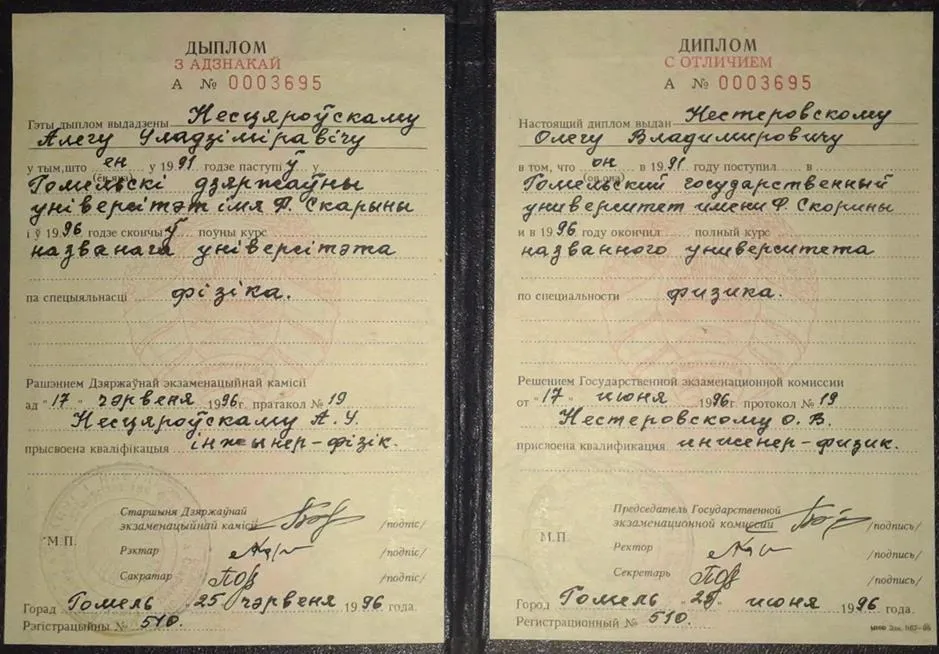 ДЫПЛОМ
З АДЗНАКАЙ
А № 0003695
Гэты дыплом выдадзены Несцяроўскаму
Алегу Уладзіміравічу
у тым, што ён у 1991 годзе паступіў у
(ён, яна)
Гомельскі дзяржаўны
універсітэт імя Ф. Скарыны
і ў 1996 годзе скончыў поўны курс
названага універсітэта
па спецыяльнасці фізіка.
Рашэннем Дзяржаўнай экзаменацыйнай камісіі
ад "17" чэрвеня 1996 г. пратакол № 19
Несцяроўскаму А. У.
прысвоена кваліфікацыя інжынер-фізік.
Старшыня Дзяржаўнай
экзаменацыйнай камісіі /подпіс/
М.П.
Рэктар /подпіс/
Сакратар /подпіс/
Горад Гомель "25" чэрвеня 1996 года.
Рэгістрацыйны № 510.
ДИПЛОМ
С ОТЛИЧИЕМ
А № 0003695
Настоящий диплом выдан Нестеровскому
Олегу Владимировичу
в том, что он в 1991 году поступил в
(он, она)
Гомельский государственный
университет имени Ф. Скорины
и в 1996 году окончил полный курс
названного университета
по специальности физика.
Решением Государственной экзаменационной комиссии
от "17" июня 1996 г. протокол № 19
Нестеровскому О. В.
присвоена квалификация инженер-физик.
Председатель Государственной
экзаменационной комиссии /подпись/
М.П.
Ректор /подпись/
Секретарь /подпись/
Город Гомель "25" июня 1996 года.
Регистрационный № 510.